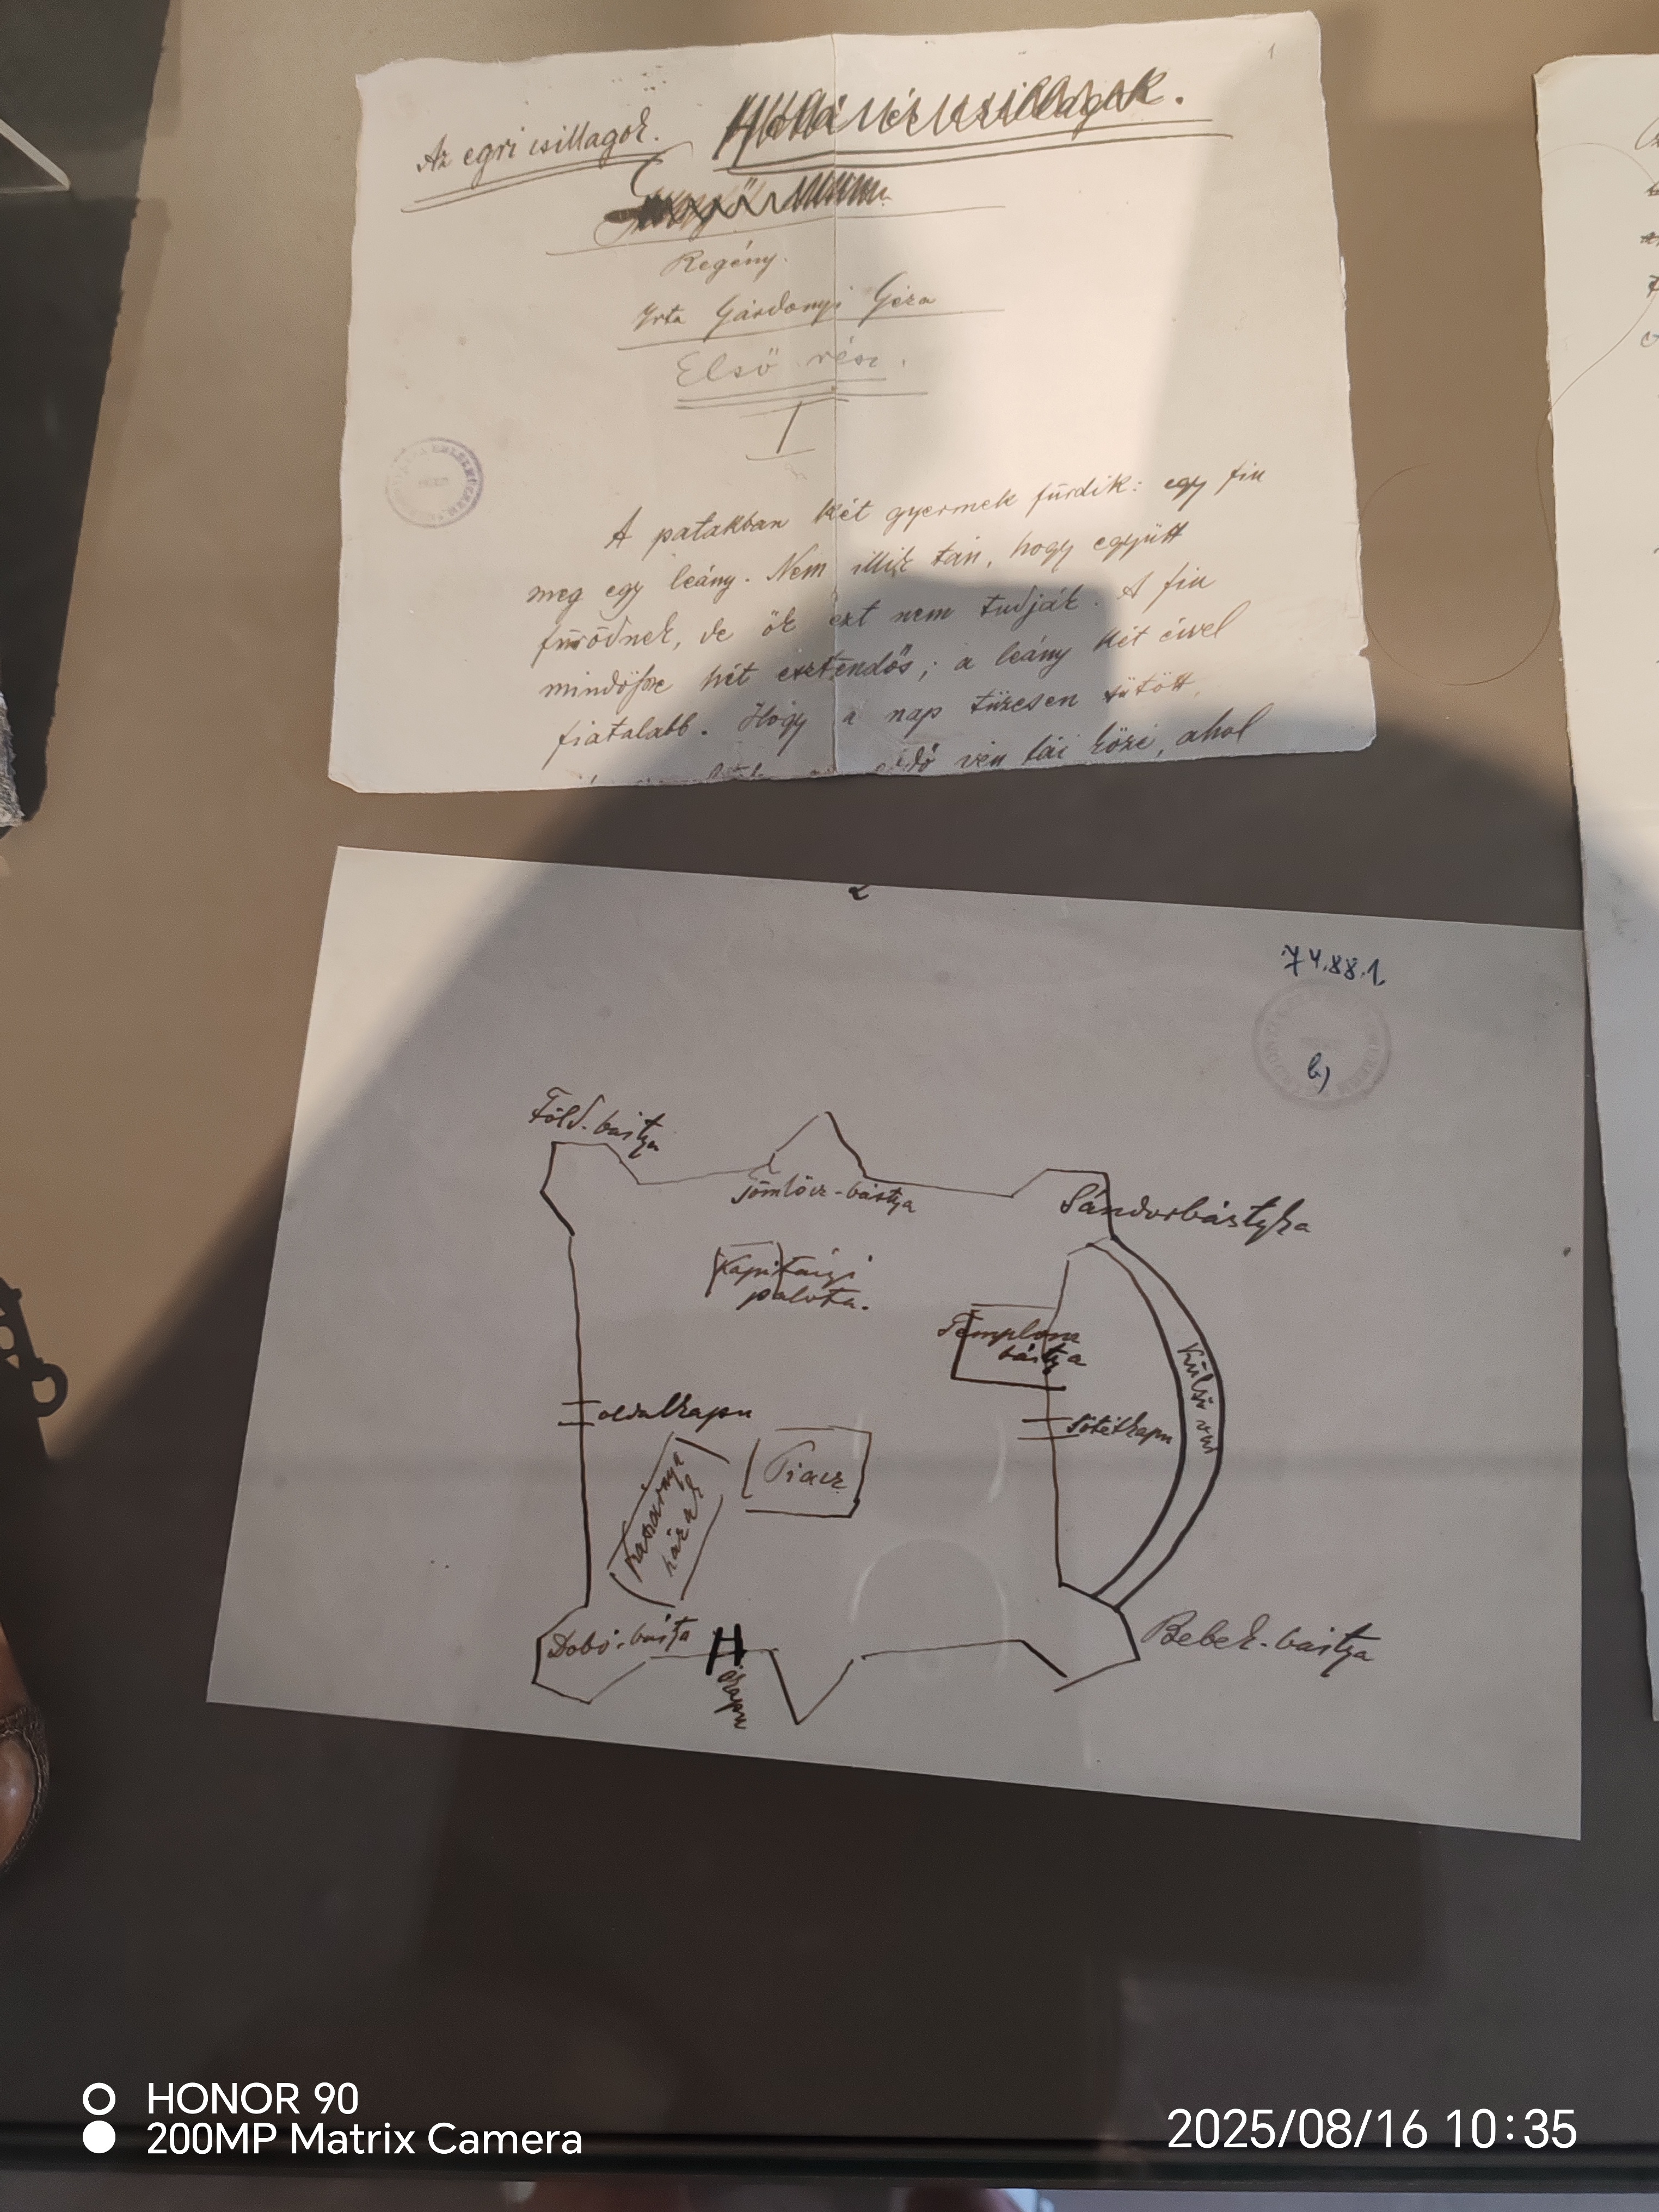 1
Az egri csillagok.
Regény.
Irta Gárdonyi Géza
Első rész.
I
A patakban két gyermek fürdik: egy fiu
meg egy leány. Nem illik tán, hogy együtt
fürödnek, de ők ezt nem tudják. A fiu
mindössze hét esztendős; a leány két évvel
fiatalabb. Hogy a nap tüzesen sütött,
közé, ahol
2
74.88.1.
b)
Föld-bástya
Tömlöcz-bástya
Sándorbástya
Kapitányi
palota.
Templom
bástya
Külső vár
oldalkapu
Sötétkapu
Piacz
Kaszárnya
házak
Dobó-bástya
ókapu
Bebek-bástya
HONOR 90
200MP Matrix Camera
2025/08/16 10:35